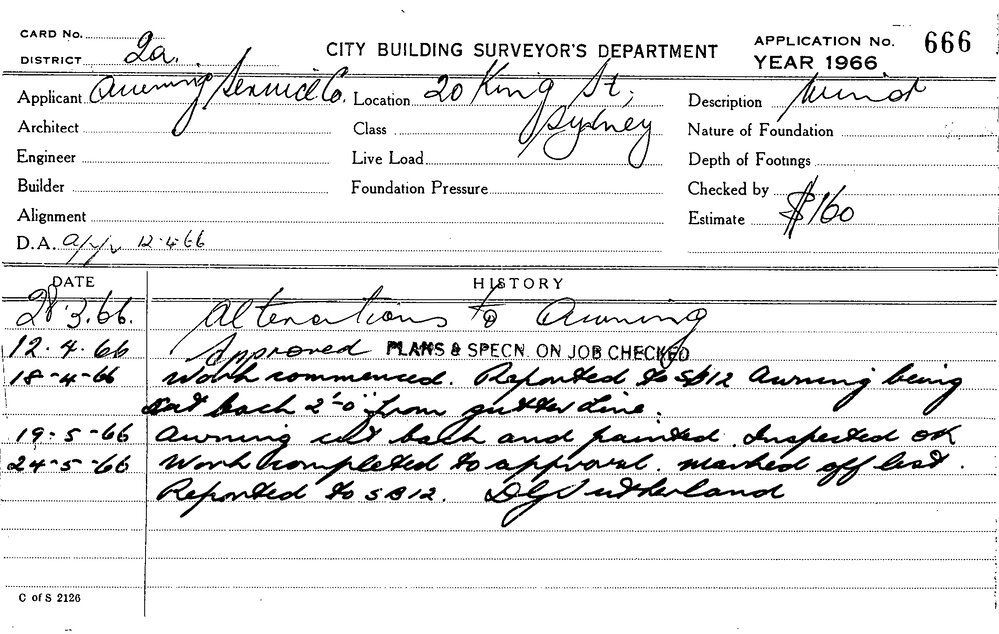 CARD No.
DISTRICT 2a.
CITY BUILDING SURVEYOR'S DEPARTMENT
APPLICATION No. 666
YEAR 1966
Applicant Awning Service Co. Location 20 King St, Description Minor
Architect Class Sydney Nature of Foundation
Engineer Live Load Depth of Footings
Builder Foundation Pressure Checked by
Alignment Estimate $160
D.A. 12.4.66
DATE HISTORY
28.3.66. Alterations to Awning
12.4.66 Approved PLANS & SPECN. ON JOB CHECKED
18-4-66 Work commenced. Reported to SB12 Awning being
cut back 2'-0" from gutter line.
19-5-66 Awning cut back and painted. Inspected OK
24-5-66 Work completed to approval. marked off list.
Reported to SB12. DG Sutherland
C of S 2126